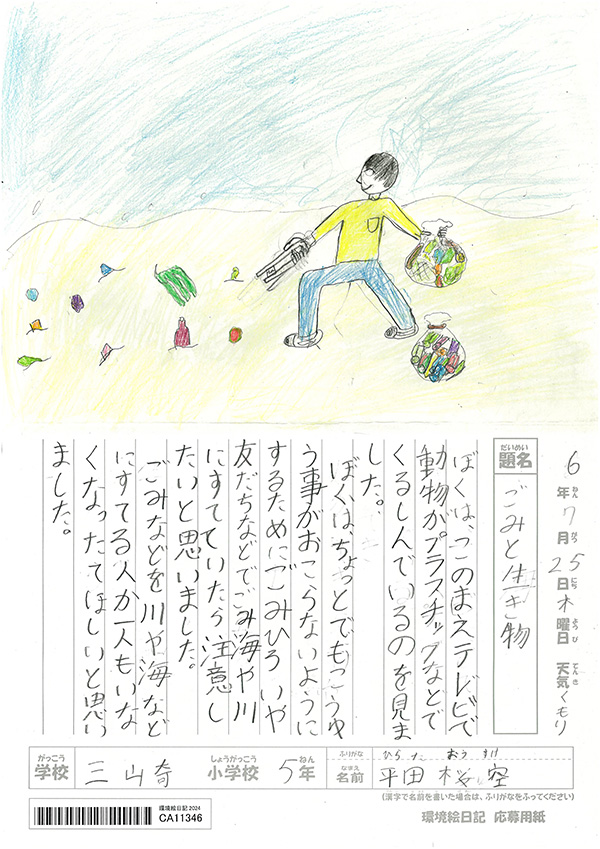 6年7月25日木曜日 天気くもり
ねん がつ にち ようび てんき
だいめい
題名 ごみと生き物
ぼくは、このまえテレビで
動物がプラスチックなどで
くるしんでいるのを見ま
した。
ぼくは、ちょっとでもこうゆ
う事がおこらないように
するためにごみひろいや
友だちなどでごみ海や川
にすてていたら注意し
たいと思いました。
ごみなどを川や海など
にすてる人が一人もいな
くなったてほしいと思い
ました。
がっこう しょうがっこう ねん
学校 三山奇 小学校 5年
ふりがな ひらた おうすけ
なまえ
名前 平田 桜空
(漢字で名前を書いた場合は、ふりがなをふってください)
環境絵日記2024
CA11346
環境絵日記 応募用紙